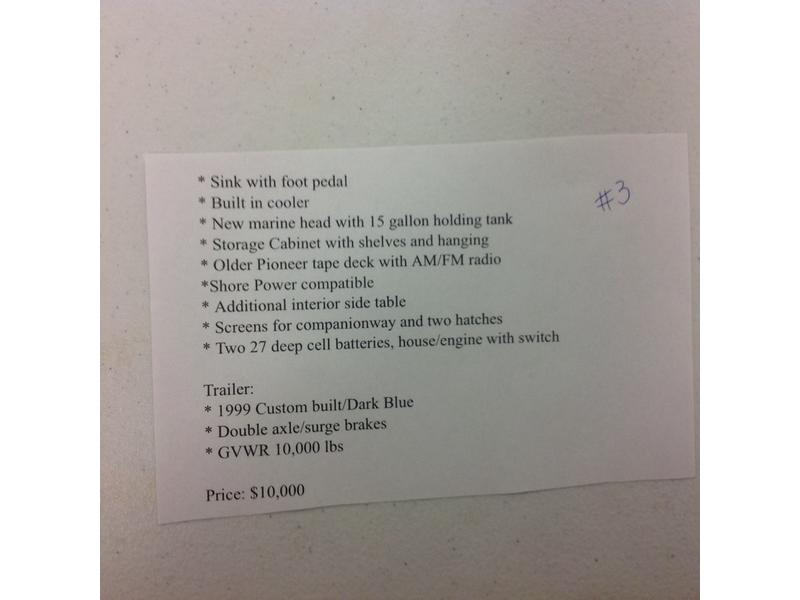 * Sink with foot pedal
#3
* Built in cooler
* New marine head with 15 gallon holding tank
* Storage Cabinet with shelves and hanging
* Older Pioneer tape deck with AM/FM radio
*Shore Power compatible
* Additional interior side table
* Screens for companionway and two hatches
* Two 27 deep cell batteries, house/engine with switch
Trailer:
* 1999 Custom built/Dark Blue
* Double axle/surge brakes
* GVWR 10,000 lbs
Price: $10,000